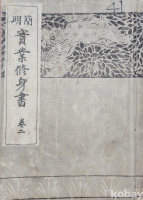 簡明
實業修身書 卷二
41
kobay